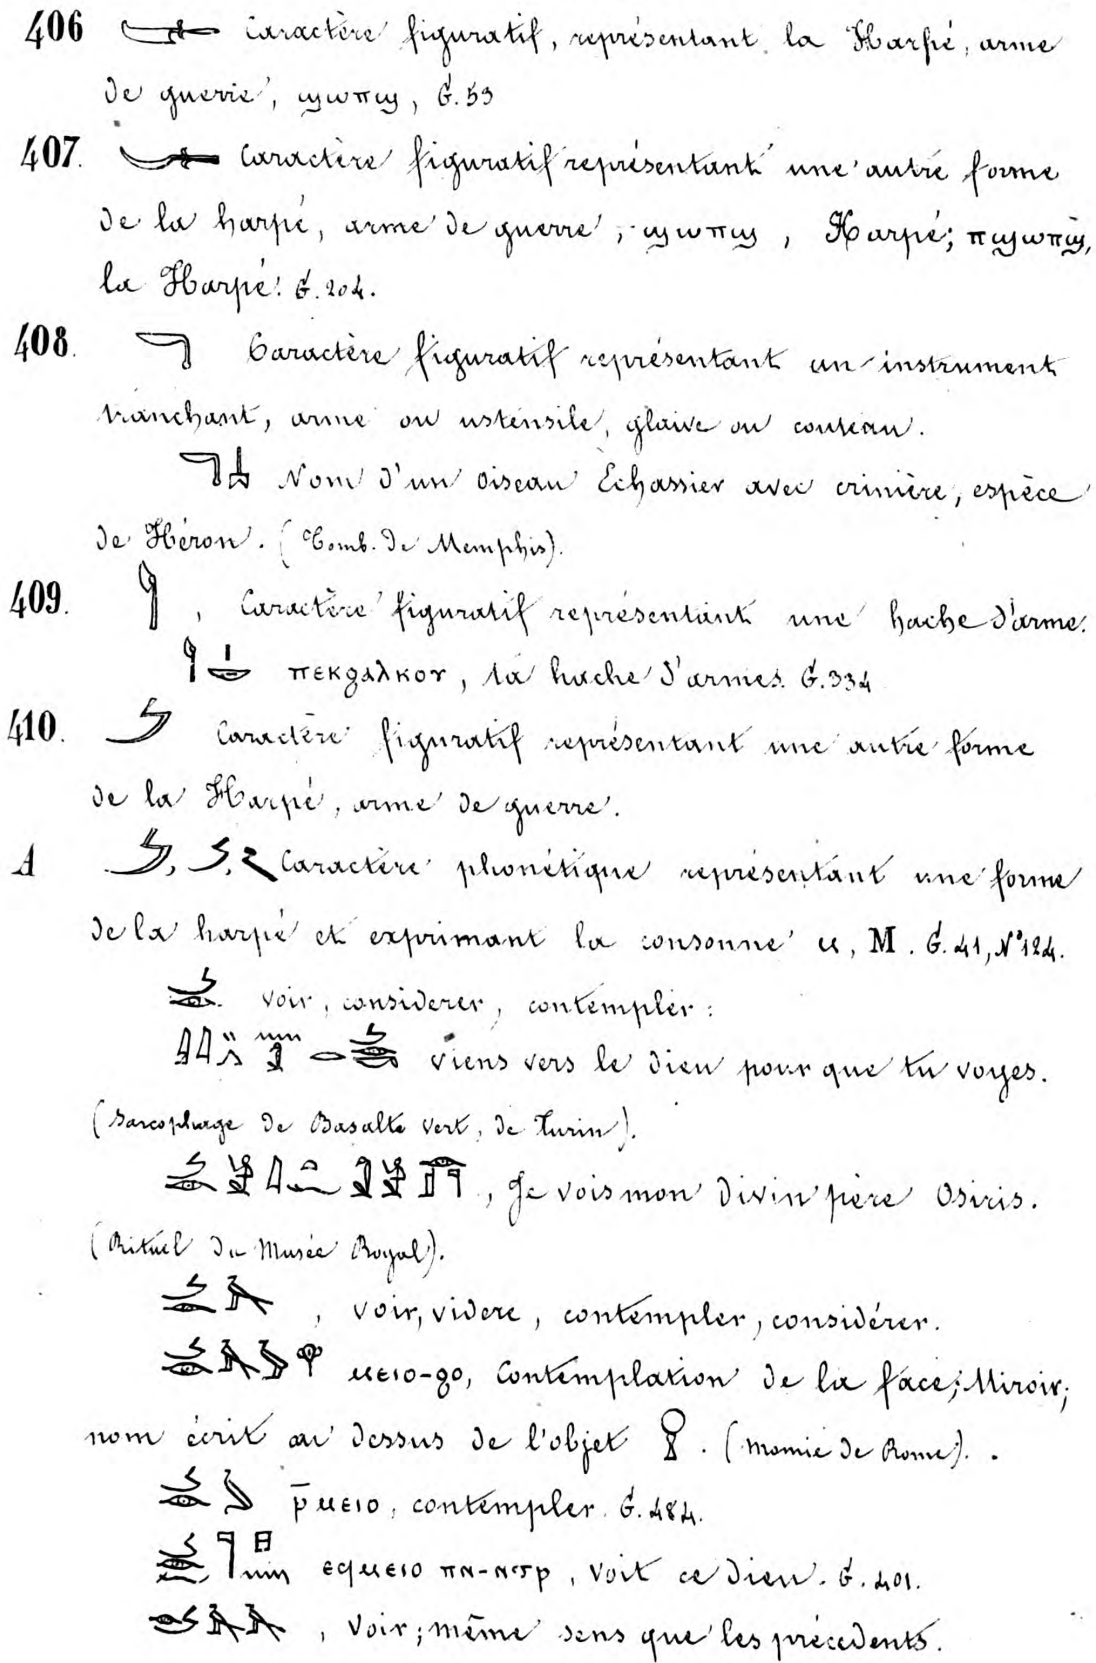 406 Caractère figuratif, représentant la Harpé, arme
de guerre, ϣωπϣ, G. 53
407. Caractère figuratif représentant une autre forme
de la harpé, arme de guerre, ϣωπϣ, Harpé; πϣωπϣ,
la Harpé. G. 204.
408. Caractère figuratif représentant un instrument
tranchant, arme ou ustensile, glaive ou couteau.
Nom d'un oiseau Echassier avec crinière, espèce
de Héron. (Tomb. de Memphis).
409. , Caractère figuratif représentant une hache d'arme.
la hache d'armes. G. 334
410. Caractère figuratif représentant une autre forme
de la Harpé, arme de guerre.
A , , Caractère phonétique représentant une forme
de la harpé et exprimant la consonne ⲙ, M. G. 41, N° 124.
voir, considerer, contempler :
viens vers le dieu pour que tu voyes.
(Sarcophage de Basalte vert, de Turin).
, Je vois mon divin père Osiris.
(Rituel du Musée Royal).
, voir, videre, contempler, considérer.
ⲙⲉⲓⲟ-ϩⲟ, Contemplation de la face; Miroir;
nom écrit au dessus de l'objet . (Momie de Rome).
ⲣ̄ⲙⲉⲓⲟ, contempler. G. 484.
ⲉϥⲙⲉⲓⲟ ⲡⲛ-ⲛⲧⲣ, voit ce dieu. G. 401.
, Voir; même sens que les précedents.